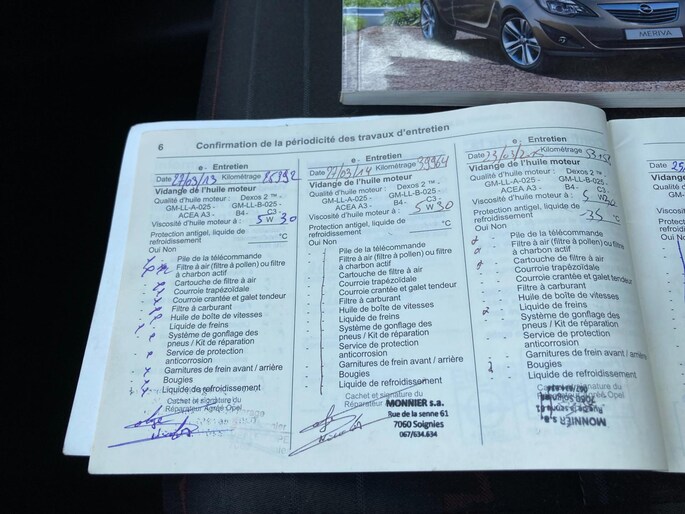 MERIVA
6 Confirmation de la périodicité des travaux d'entretien
e - Entretien
Date 27/03/13 Kilométrage
Vidange de l'huile moteur
Qualité d'huile moteur : Dexos 2 ™ -
GM-LL-A-025 - GM-LL-B-025 -
ACEA A3 - B4 - C3 -
Viscosité d'huile moteur à : 5 W 30
Protection antigel, liquide de
refroidissement °C
Oui Non
Pile de la télécommande
Filtre à air (filtre à pollen) ou filtre
à charbon actif
Cartouche de filtre à air
Courroie trapézoïdale
Courroie crantée et galet tendeur
Filtre à carburant
Huile de boîte de vitesses
Liquide de freins
Système de gonflage des
pneus / Kit de réparation
Service de protection
anticorrosion
Garnitures de frein avant / arrière
Bougies
Liquide de refroidissement
Cachet et signature du
Réparateur Agréé Opel
e - Entretien
Date Kilométrage 39914
Vidange de l'huile moteur
Qualité d'huile moteur : Dexos 2 ™ -
GM-LL-A-025 - GM-LL-B-025 -
ACEA A3 - B4 - C3 -
Viscosité d'huile moteur à : 5 W 30
Protection antigel, liquide de
refroidissement °C
Oui Non
Pile de la télécommande
Filtre à air (filtre à pollen) ou filtre
à charbon actif
Cartouche de filtre à air
Courroie trapézoïdale
Courroie crantée et galet tendeur
Filtre à carburant
Huile de boîte de vitesses
Liquide de freins
Système de gonflage des
pneus / Kit de réparation
Service de protection
anticorrosion
Garnitures de frein avant / arrière
Bougies
Liquide de refroidissement
Cachet et signature du
Réparateur
MONNIER s.a.
Rue de la senne 61
7060 Soignies
067/634.634
e - Entretien
Date Kilométrage
Vidange de l'huile moteur
Qualité d'huile moteur : Dexos 2 ™ -
GM-LL-A-025 - GM-LL-B-025 -
ACEA A3 - B4 - C3 -
Viscosité d'huile moteur à : 5 W
Protection antigel, liquide de
refroidissement -35 °C
Oui Non
Pile de la télécommande
Filtre à air (filtre à pollen) ou filtre
à charbon actif
Cartouche de filtre à air
Courroie trapézoïdale
Courroie crantée et galet tendeur
Filtre à carburant
Huile de boîte de vitesses
Liquide de freins
Système de gonflage des
pneus / Kit de réparation
Service de protection
anticorrosion
Garnitures de frein avant / arrière
Bougies
Liquide de refroidissement
MONNIER s.a.
Date
Vidange
Qualité d'hu
GM-L
Viscosité
Protection
refroidisse
Oui Non